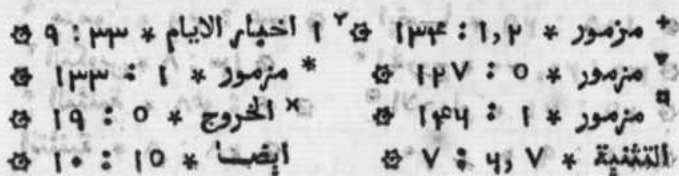 + مزمور * ١,٢ : ١٣٤ ۞ ٢ ١ اخبار الايام * ٣٣ : ٩ ۞
▾ مزمور * ٥ : ١٢٧ ۞ * مزمور * ١ : ١٣٣ ۞
¤ مزمور * ١ : ١٤٦ ۞ × الخروج * ٥ : ١٩ ۞
التثنية * ٦,٧ : ٧ ۞ ايضا * ١٥ : ١٠ ۞